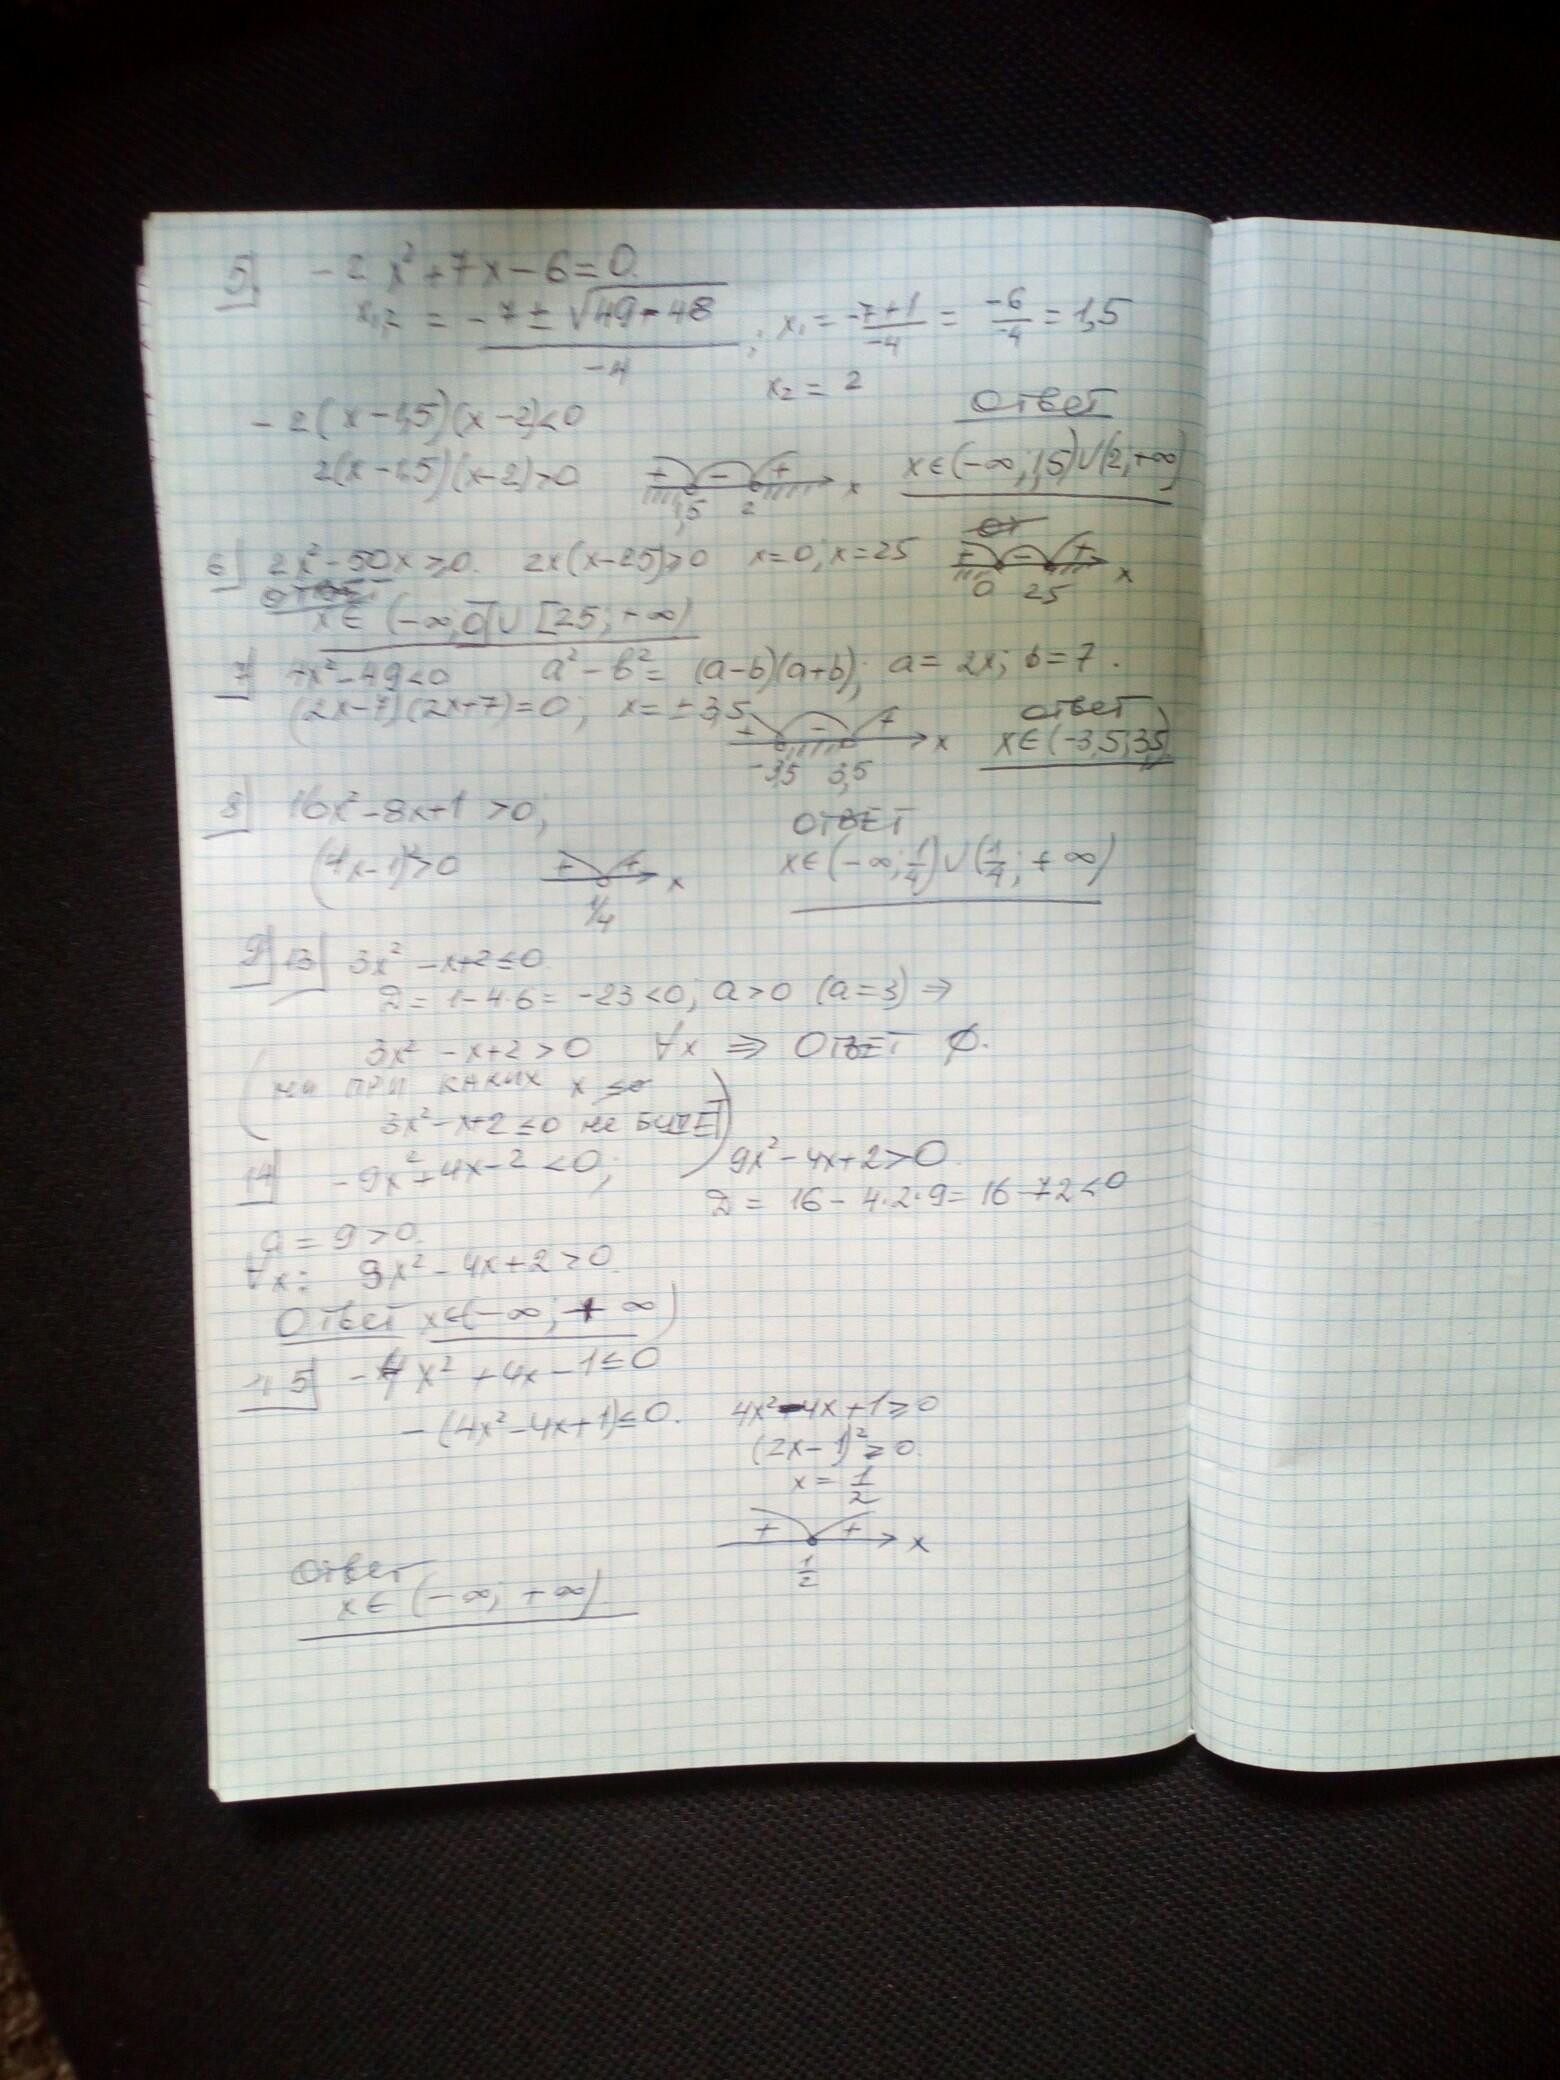 5. -2x²+7x-6=0.
x₁,₂ = -7±√49-48 / -4 ; x₁ = -7+1/-4 = -6/-4 = 1,5
x₂ = 2
-2(x-1,5)(x-2)<0 Ответ
2(x-1,5)(x-2)>0 + - + x 1,5 2 x∈(-∞; 1,5)∪(2; +∞)
6 2x²-50x≥0. 2x(x-25)≥0 x=0; x=25 + - + x 0 25
Ответ
x∈(-∞;0]∪[25; +∞)
7 4x²-49<0 a²-b²=(a-b)(a+b); a=2x; b=7.
(2x-7)(2x+7)=0; x=±3,5 + - + x -3,5 3,5 Ответ
x∈(-3,5;3,5)
8 16x²-8x+1>0; ОТВЕТ
(4x-1)²>0 + + x 1/4 x∈(-∞; 1/4)∪(1/4; +∞)
9 13 3x²-x+2≤0
D = 1-4·6= -23<0; a>0 (a=3) ⇒
3x²-x+2>0 ∀x ⇒ ОТВЕТ ∅.
(НИ ПРИ КАКИХ x
3x²-x+2≤0 не БУДЕТ)
14 -9x²+4x-2<0; 9x²-4x+2>0.
D = 16-4·2·9=16-72<0
a=9>0.
∀x: 9x²-4x+2>0.
Ответ x∈(-∞; +∞)
15 -4x²+4x-1≤0
-(4x²-4x+1)≤0. 4x²-4x+1≥0
(2x-1)²≥0.
x=1/2
+ + x
1/2
Ответ
x∈(-∞; +∞).